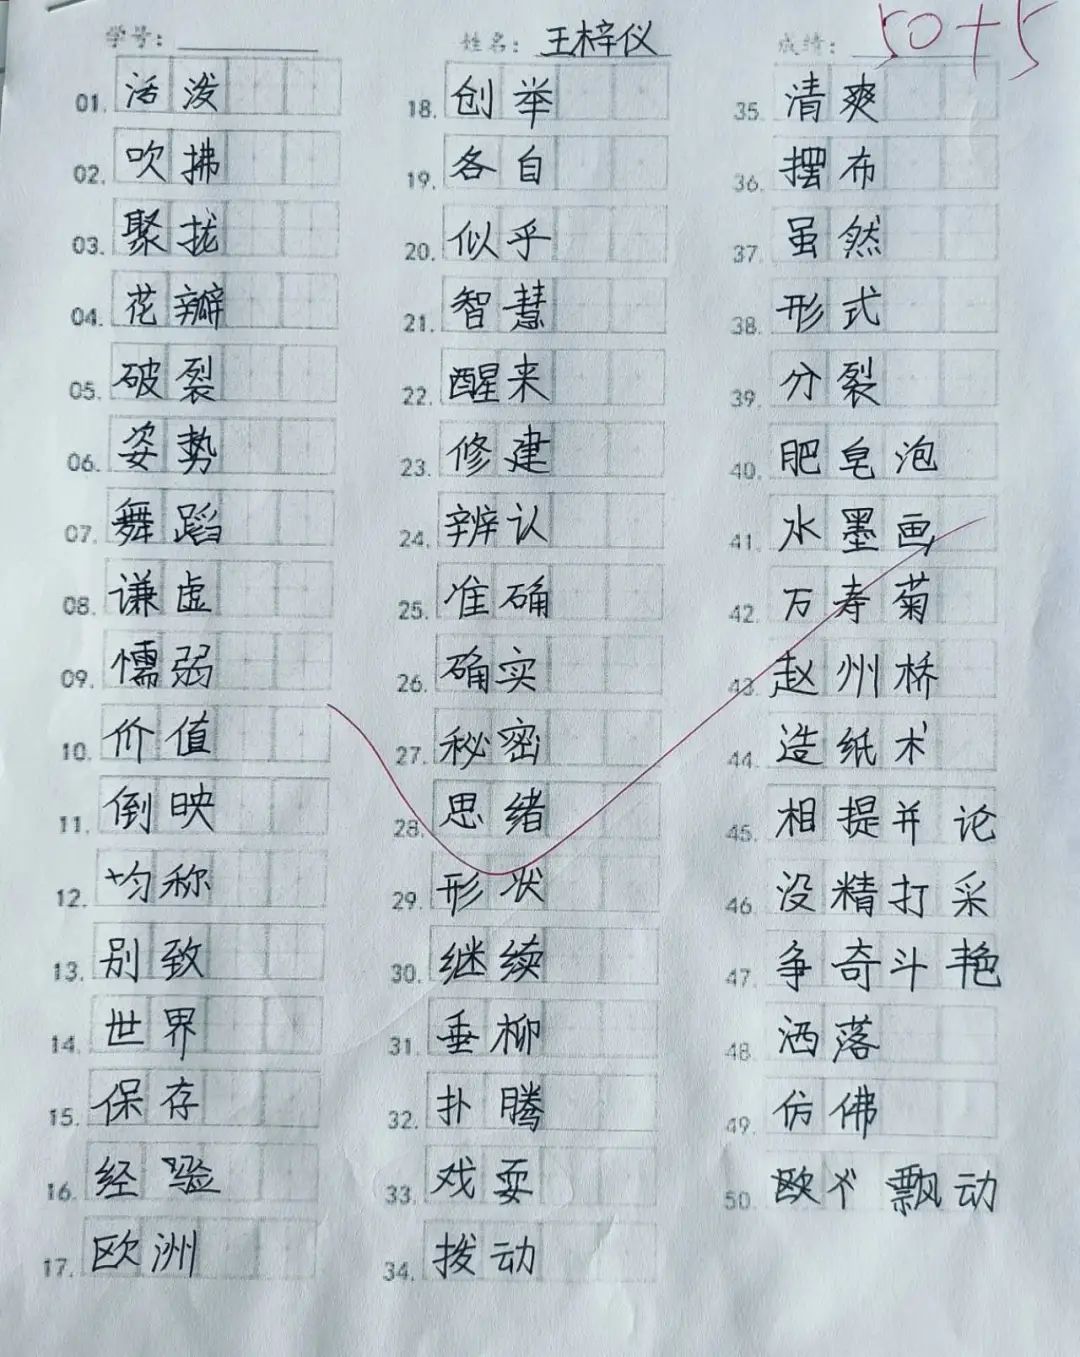 学号: 姓名: 王梓仪 成绩: 50+5
01. 活泼
02. 吹拂
03. 聚拢
04. 花瓣
05. 破裂
06. 姿势
07. 舞蹈
08. 谦虚
09. 懦弱
10. 价值
11. 倒映
12. 均称
13. 别致
14. 世界
15. 保存
16. 经验
17. 欧洲
18. 创举
19. 各自
20. 似乎
21. 智慧
22. 醒来
23. 修建
24. 辨认
25. 准确
26. 确实
27. 秘密
28. 思绪
29. 形状
30. 继续
31. 垂柳
32. 扑腾
33. 戏耍
34. 拨动
35. 清爽
36. 摆布
37. 虽然
38. 形式
39. 分裂
40. 肥皂泡
41. 水墨画
42. 万寿菊
43. 赵州桥
44. 造纸术
45. 相提并论
46. 没精打采
47. 争奇斗艳
48. 洒落
49. 仿佛
50. 飘动